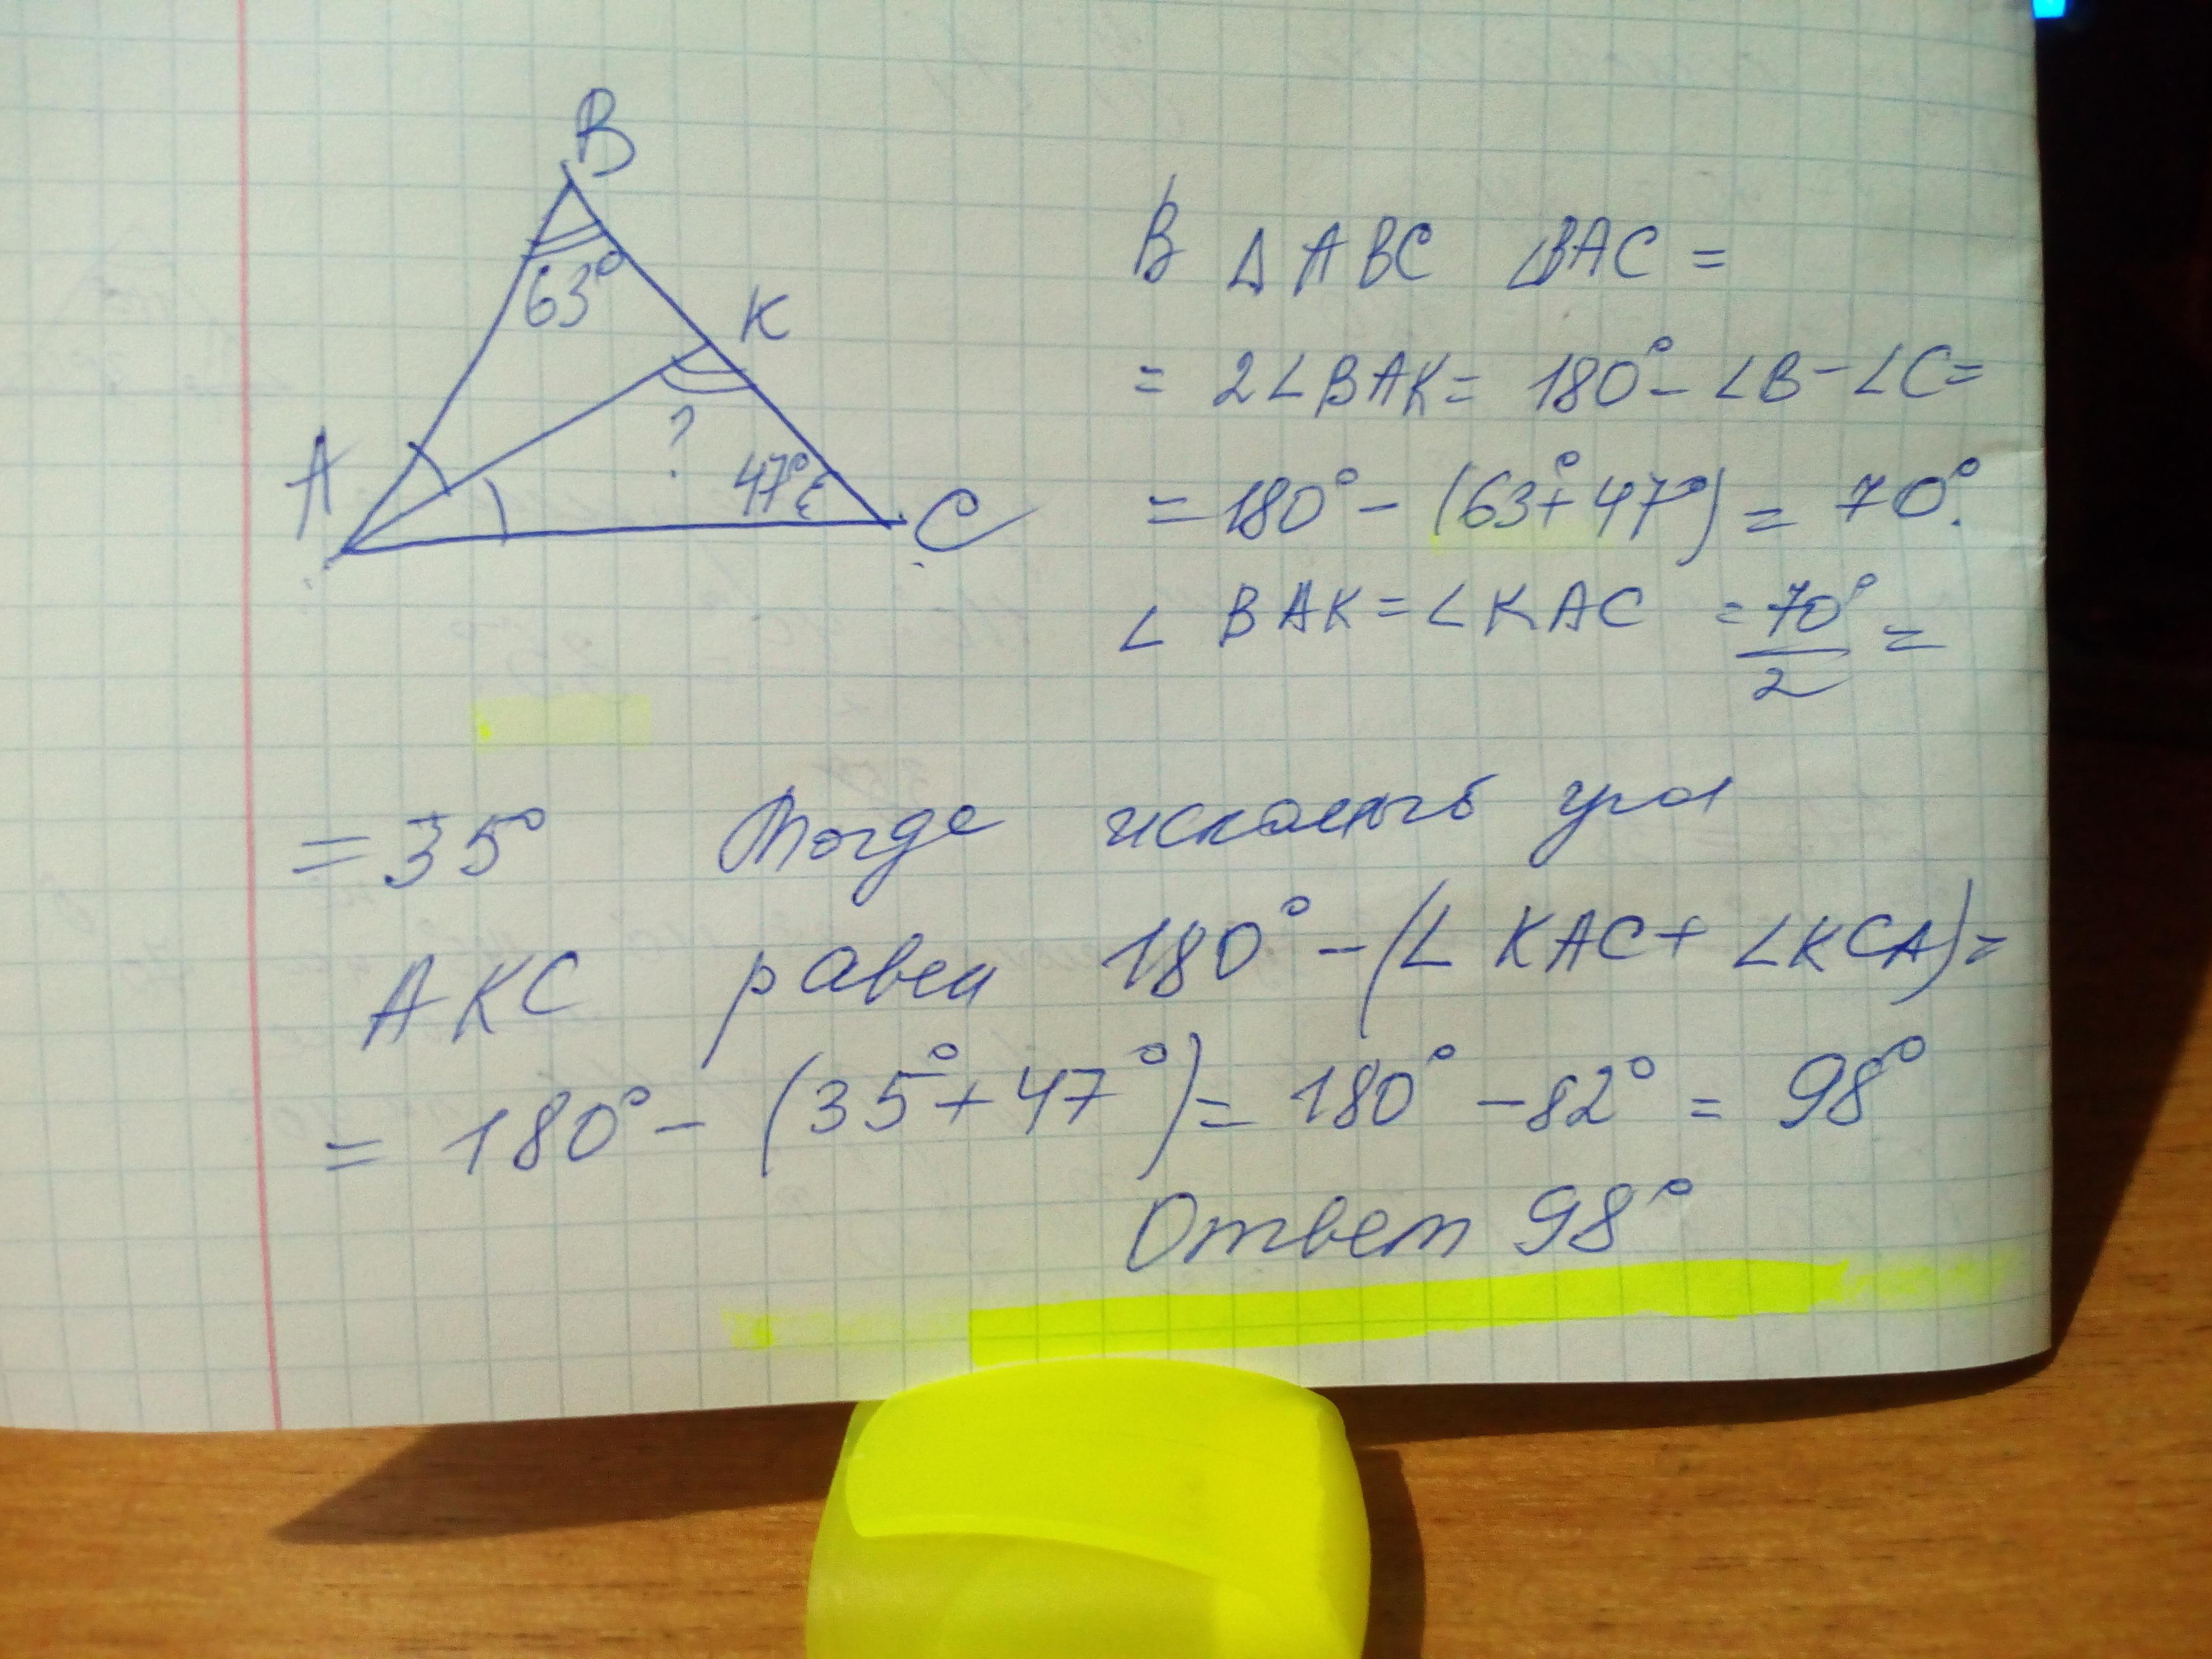 B
63°
K
A
?
47°
C
В ΔABC ∠BAC =
= 2∠BAK = 180° - ∠B - ∠C =
= 180° - (63° + 47°) = 70°.
∠BAK = ∠KAC = 70°/2 =
= 35° Тогда искомый угол
AKC равен 180° - (∠KAC + ∠KCA) =
= 180° - (35° + 47°) = 180° - 82° = 98°
Ответ 98°